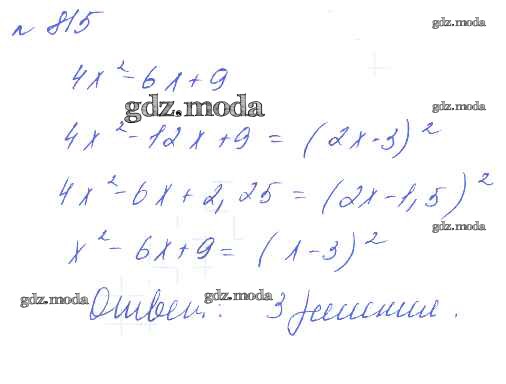 № 815
gdz.moda
4x² - 6x + 9
gdz.moda
gdz.moda
4x² - 12x + 9 = (2x - 3)²
4x² - 6x + 2,25 = (2x - 1,5)²
gdz.moda
x² - 6x + 9 = (x - 3)²
gdz.moda
gdz.moda
Ответ: 3